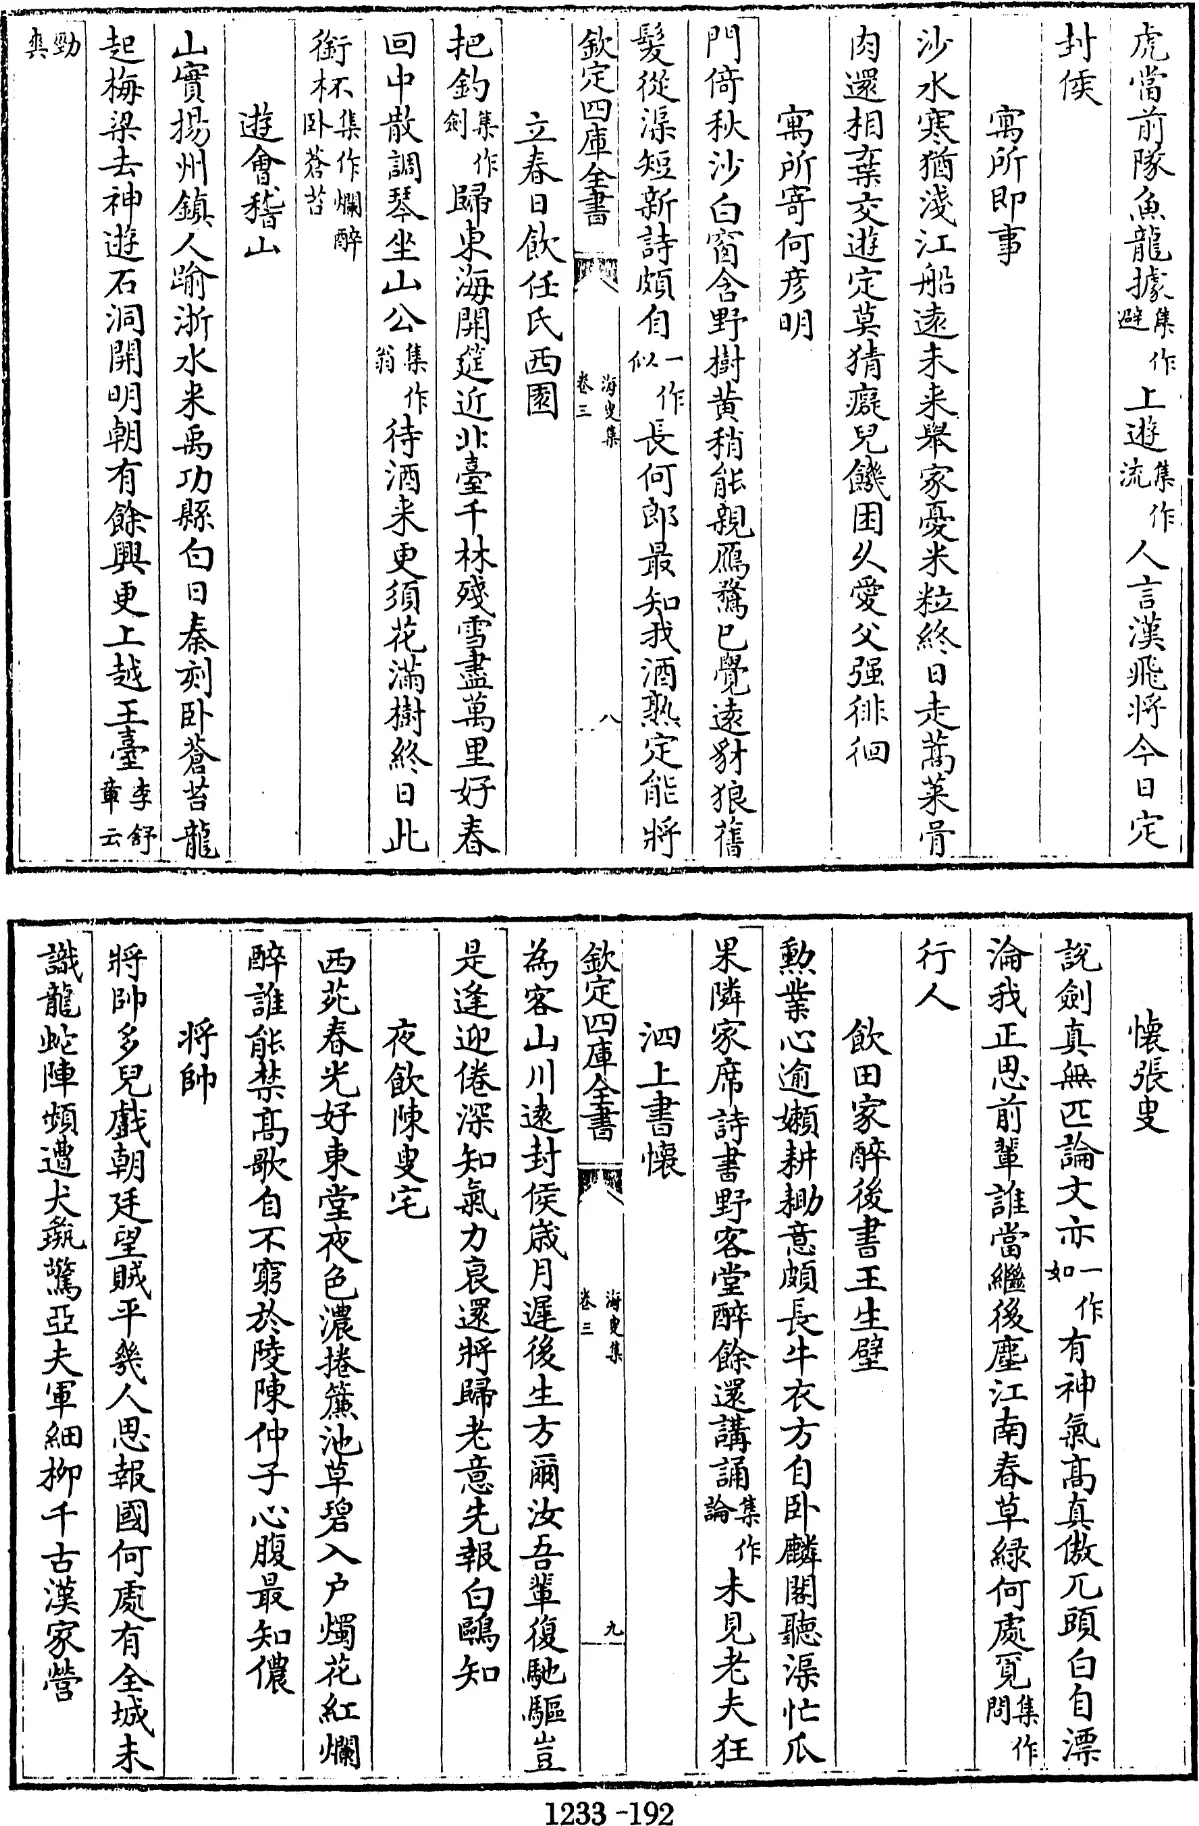 虎當前隊魚龍據集作避上遊集作流人言漢飛將今日定
封侯
寓所即事
沙水寒猶淺江船遠未来舉家憂米粒終日走蒿萊骨
肉還相棄交遊定莫猜癡兒饑困久愛父强徘徊
寓所寄何彥明
門倚秋沙白窗含野樹黄稍能親鴈鶩已覺遠豺狼舊
髮從渠短新詩頗自一作似長何郎最知我酒熟定能將
欽定四庫全書
海叟集
卷三
八
立春日飲任氏西園
把釣集作劍歸東海開筵近北臺千林殘雪盡萬里好春
回中散調琴坐山公集作翁待酒来更須花滿樹終日此
銜杯集作爛醉卧蒼苔
遊會稽山
山實揚州鎮人踰浙水来禹功縣白日秦刻卧蒼苔龍
起梅梁去神遊石洞開明朝有餘興更上越王臺李舒章云
勁爽
懷張叟
說劍真無匹論文亦一作如有神氣髙真傲兀頭白自漂
淪我正思前輩誰當繼後塵江南春草緑何處覓集作問
行人
飲田家醉後書王生壁
勲業心逾嬾耕耡意頗長牛衣方自卧麟閣聽渠忙瓜
果隣家席詩書野客堂醉餘還講誦集作論未見老夫狂
泗上書懷
欽定四庫全書
海叟集
卷三
九
為客山川遠封侯歳月遲後生方爾汝吾輩復馳驅豈
是逢迎倦深知氣力衰還將歸老意先報白鷗知
夜飲陳叟宅
西苑春光好東堂夜色濃捲簾池草碧入户燭花紅爛
醉誰能禁髙歌自不窮於陵陳仲子心腹最知儂
將帥
將帥多兒戲朝廷望賊平幾人思報國何處有全城未
識龍蛇陣頻遭犬彘驚亞夫軍細栁千古漢家營
1233-192